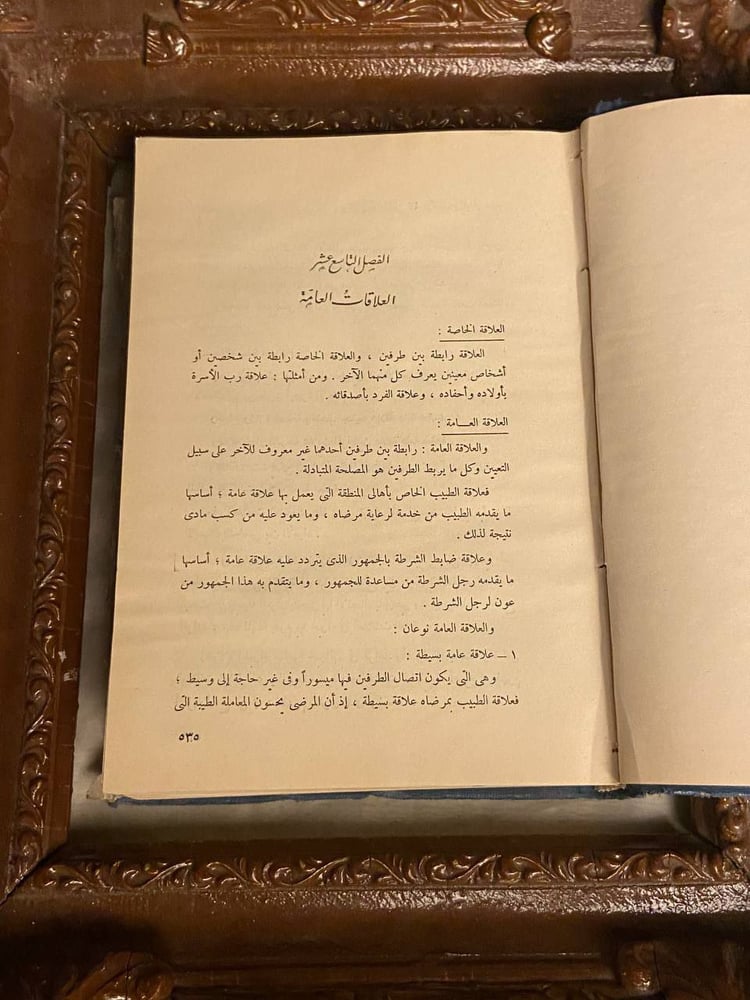 الفصل التاسع عشر
العلاقات العامة
العلاقة الخاصة :
العلاقة رابطة بين طرفين ، والعلاقة الخاصة رابطة بين شخصين أو
أشخاص معينين يعرف كل منهما الآخر . ومن أمثلتها : علاقة رب الأسرة
بأولاده وأحفاده ، وعلاقة الفرد بأصدقائه .
العلاقة العـــامة :
والعلاقة العامة : رابطة بين طرفين أحدهما غير معروف للآخر على سبيل
التعيين وكل ما يربط الطرفين هو المصلحة المتبادلة .
فعلاقة الطبيب الخاص بأهالى المنطقة التى يعمل بها علاقة عامة ؛ أساسها
ما يقدمه الطبيب من خدمة لرعاية مرضاه ، وما يعود عليه من كسب مادى
نتيجة لذلك .
وعلاقة ضابط الشرطة بالجمهور الذى يتردد عليه علاقة عامة ؛ أساسها
ما يقدمه رجل الشرطة من مساعدة للجمهور ، وما يتقدم به هذا الجمهور من
عون لرجل الشرطة .
والعلاقة العامة نوعان :
١ – علاقة عامة بسيطة :
وهى التى يكون اتصال الطرفين فيها ميسوراً وفى غير حاجة إلى وسيط ؛
فعلاقة الطبيب بمرضاه علاقة بسيطة ، إذ أن المرضى يحسون المعاملة الطيبة التى
٥٣٥